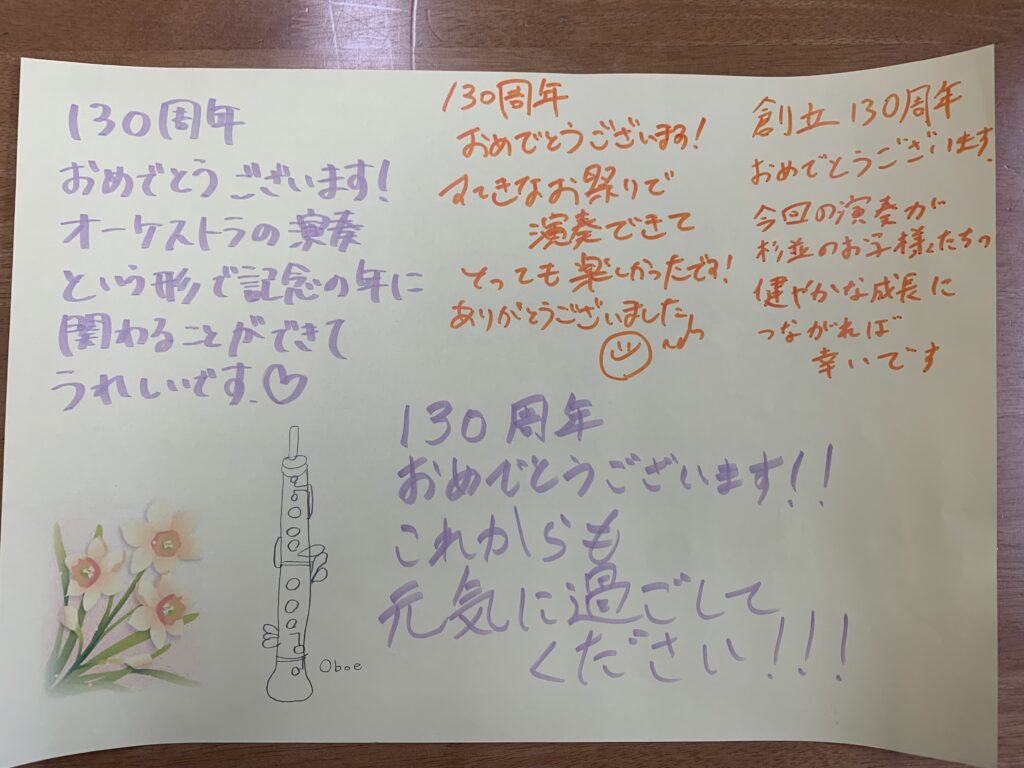 130周年
おめでとうございます!
オーケストラの演奏
という形で記念の年に
関わることができて
うれしいです♡
130周年
おめでとうございます!
すてきなお祭りで
演奏できて
とっても楽しかったです!
ありがとうございました
創立130周年
おめでとうございます.
今回の演奏が
杉並のお子様たちの
健やかな成長に
つながれば
幸いです
130周年
おめでとうございます!!
これからも
元気に過ごして
ください!!!
Oboe